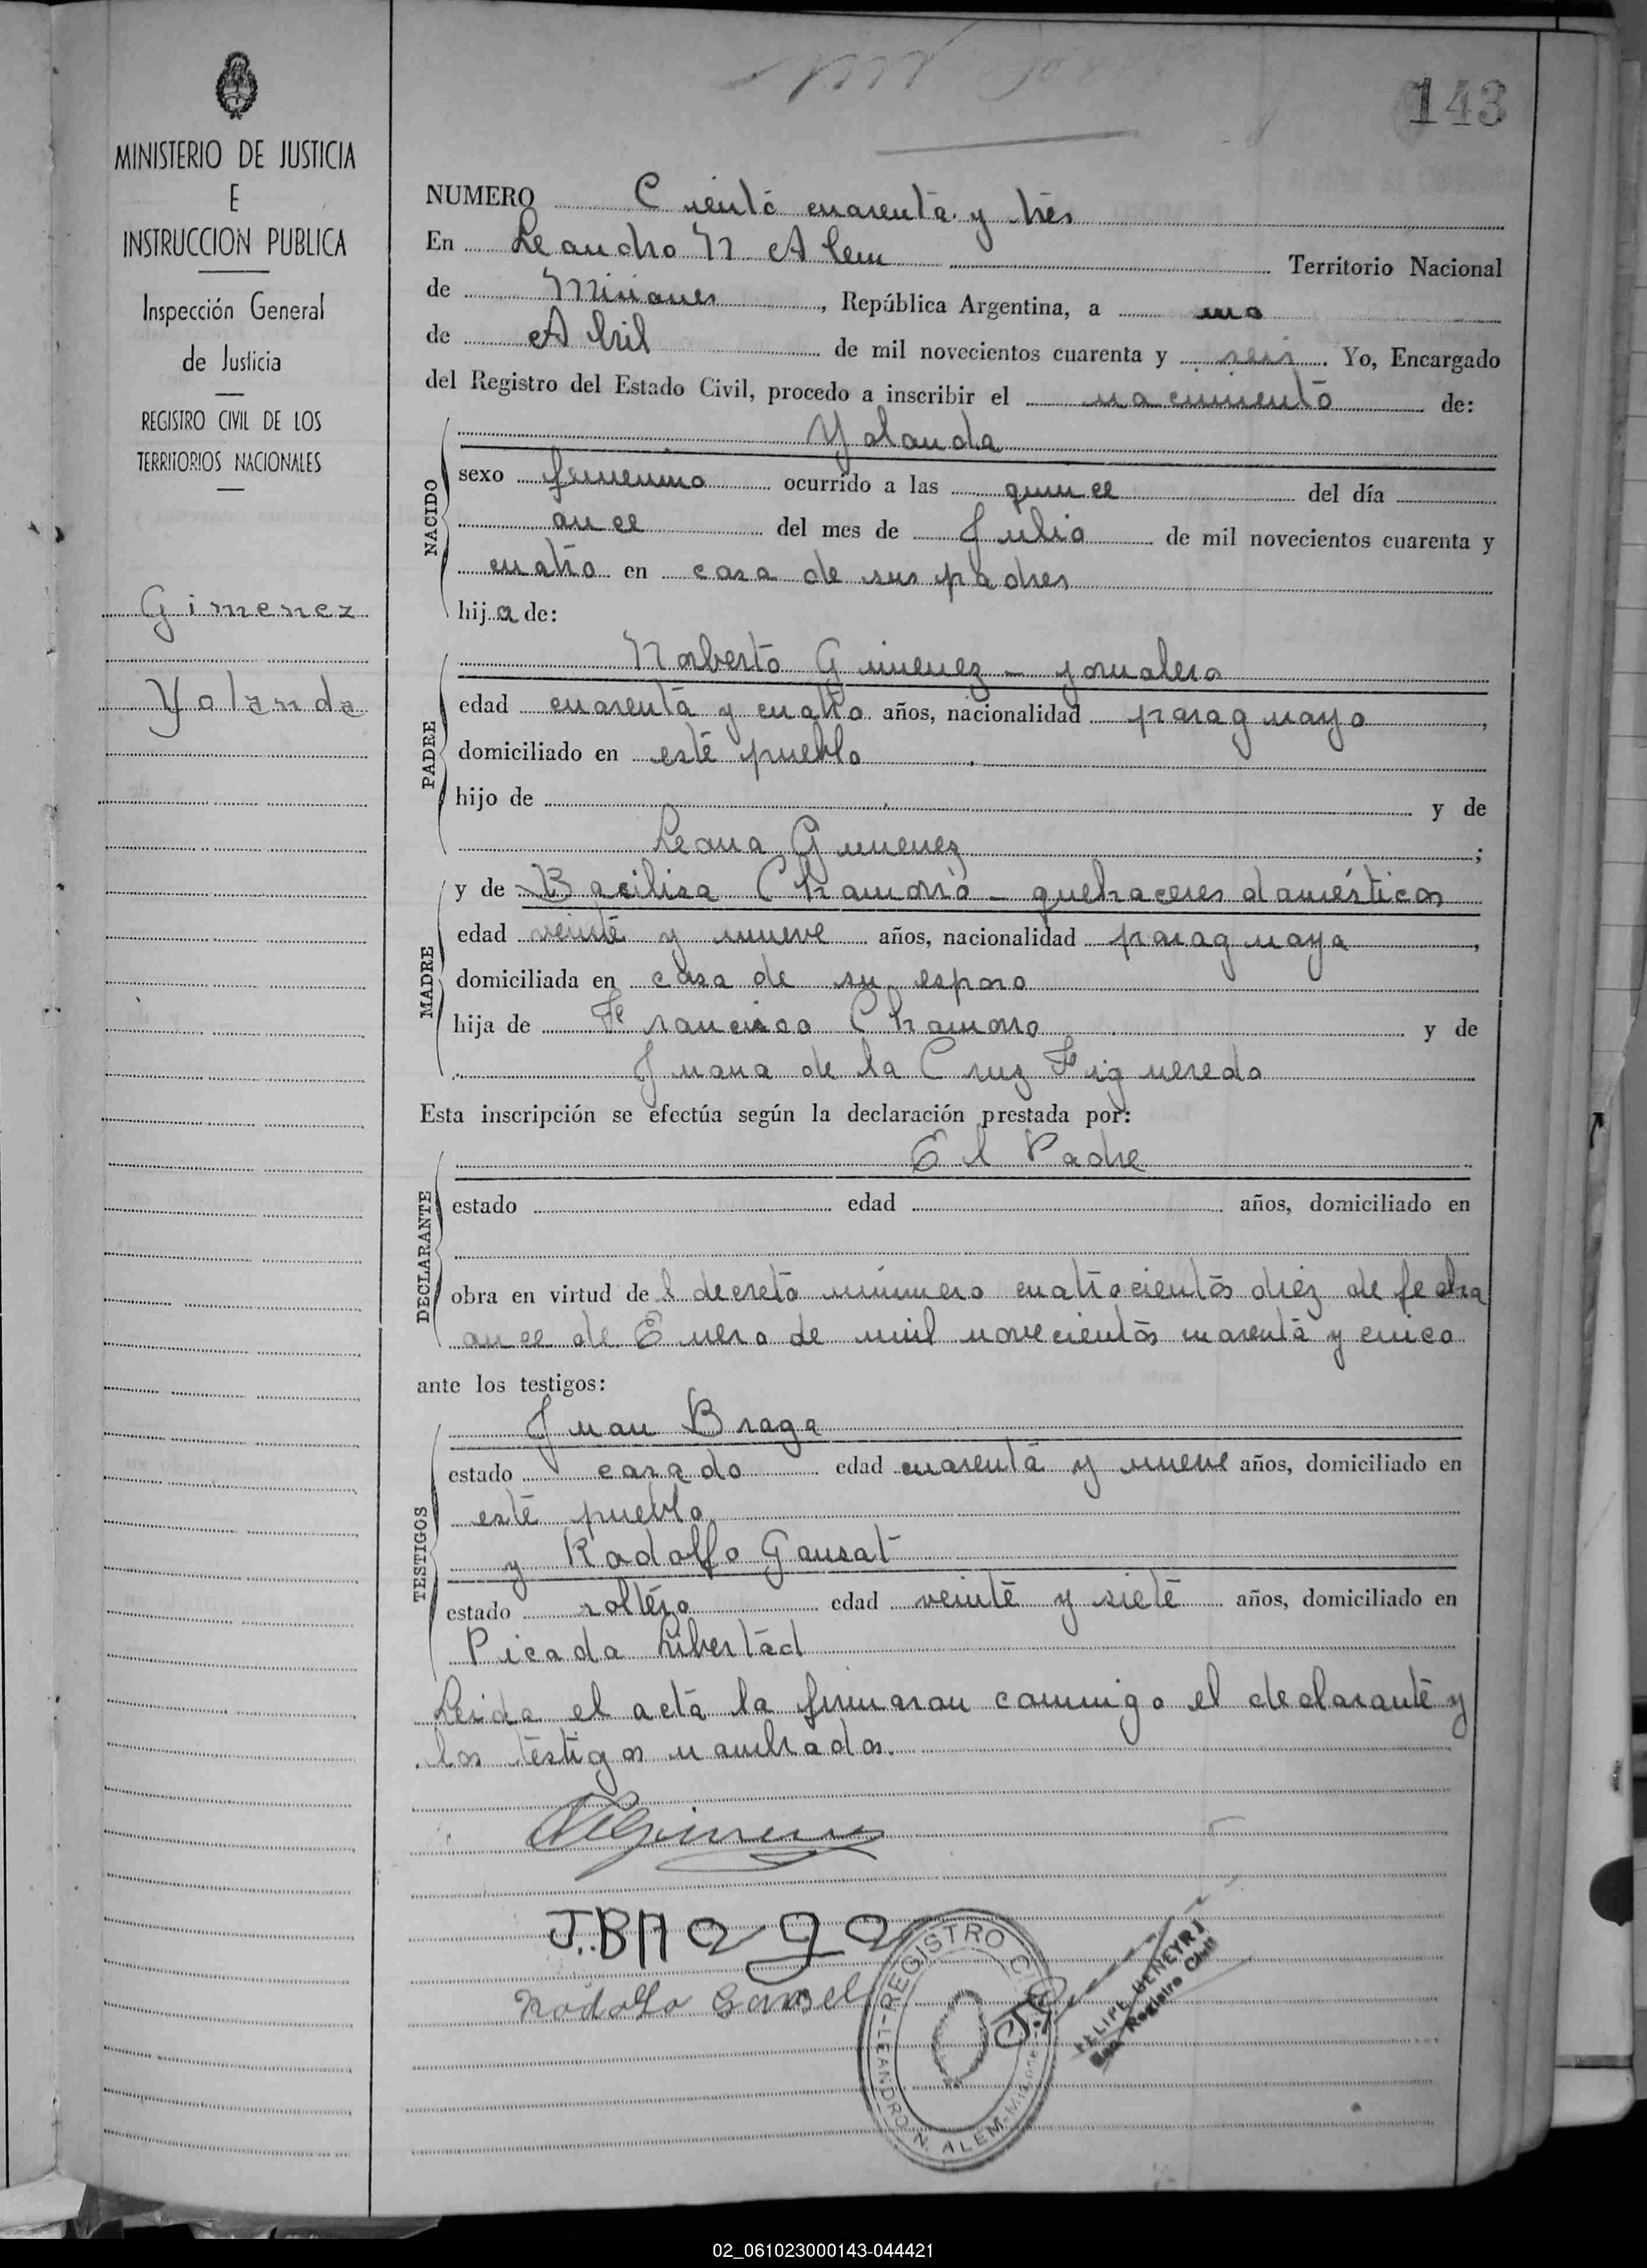 143
MINISTERIO DE JUSTICIA
E
INSTRUCCION PUBLICA
Inspección General
de Justicia
REGISTRO CIVIL DE LOS
TERRITORIOS NACIONALES
Gimenez
Yolanda
NUMERO Ciento cuarenta y tres
En Leandro N Alem Territorio Nacional
de Misiones, República Argentina, a uno
de Abril de mil novecientos cuarenta y seis. Yo, Encargado
del Registro del Estado Civil, procedo a inscribir el nacimiento de:
NACIDO
Yolanda
sexo femenino ocurrido a las quince del día
once del mes de Julio de mil novecientos cuarenta y
cuatro en casa de sus padres
hija de:
PADRE
Norberto Gimenez - jornalero
edad cuarenta y cuatro años, nacionalidad paraguayo,
domiciliado en este pueblo
hijo de y de
Leona Gimenez;
MADRE
y de Bacilisa Chamorro - quehaceres domésticos
edad veinte y nueve años, nacionalidad paraguaya,
domiciliada en casa de su esposo
hija de Francisco Chamorro y de
Juana de la Cruz Figueredo
Esta inscripción se efectúa según la declaración prestada por:
DECLARANTE
El Padre
estado edad años, domiciliado en
obra en virtud del decreto número cuatrocientos diez de fecha
once de Enero de mil novecientos cuarenta y cinco
ante los testigos:
TESTIGOS
Juan Braga
estado casado edad cuarenta y nueve años, domiciliado en
este pueblo
y Rodolfo Gausat
estado soltero edad veinte y siete años, domiciliado en
Picada Libertad
Leida el acta la firmaron conmigo el declarante y
los testigos nombrados.
NGimenez
J.BRaga
Rodolfo
REGISTRO CIVIL
LEANDRO N. ALEM-Misiones
FELIPE GENEYRI
Registro Civil
02_061023000143-044421